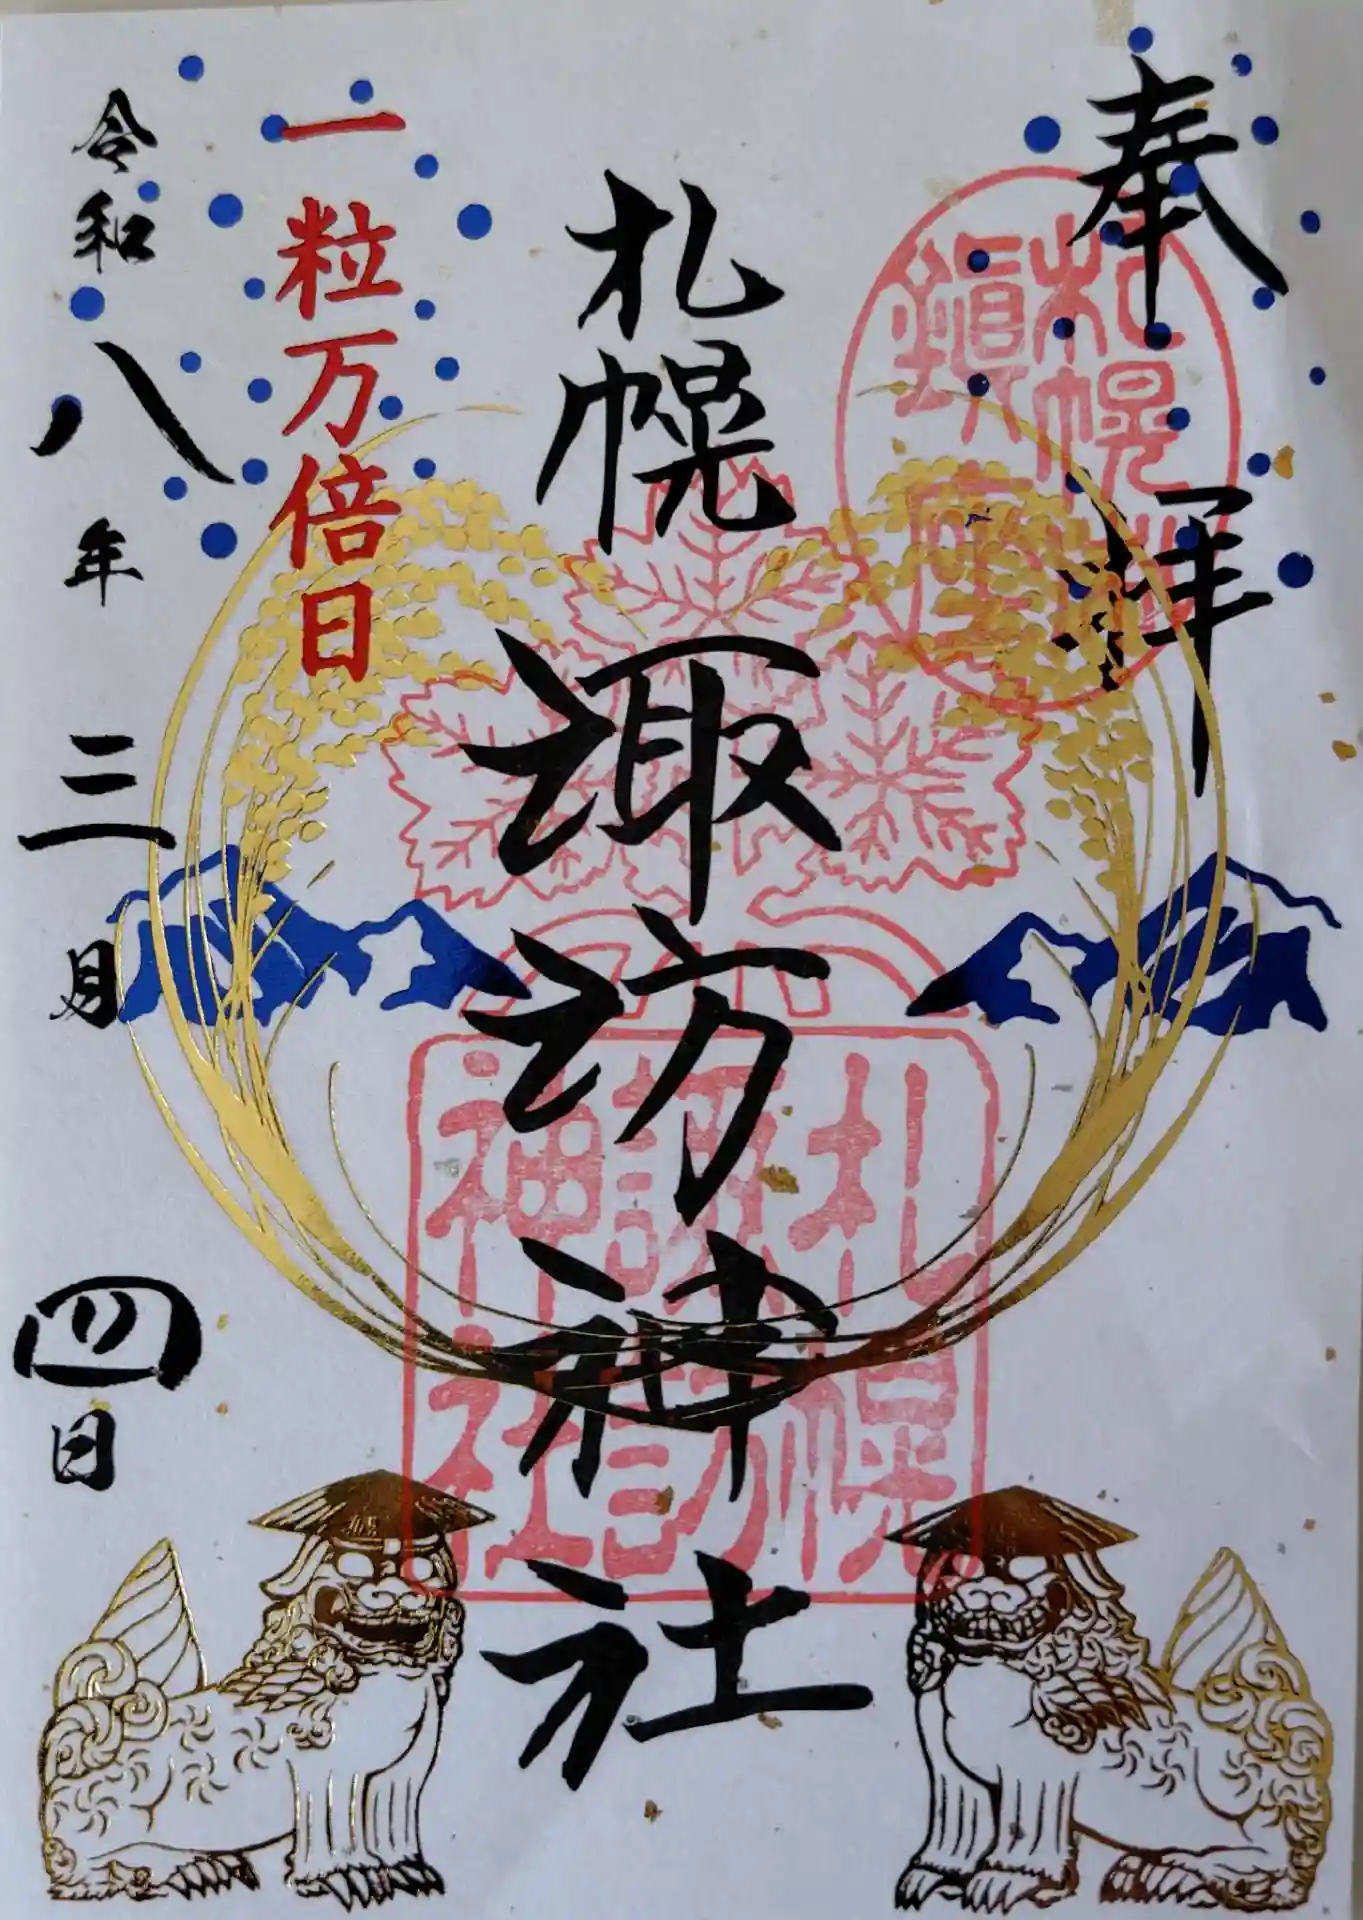 奉拝
札幌
札幌諏訪神社
札幌諏訪神社
一粒万倍日
令和八年三月四日